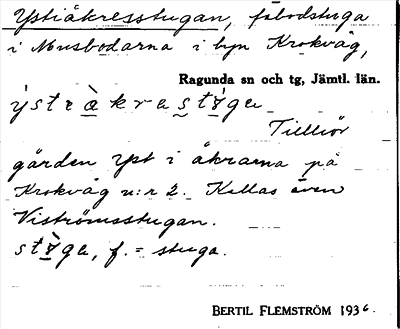 Ystiåkresstugan, fabodstuga
i Musbodarna i byn Krokvåg,
Ragunda sn och tg, Jämtl. län.
Tillhör
gården Yst i åkrarna på
Krokvåg n:r 2. Kallas även
Viströmsstugan.
f. = stuga.
BERTIL FLEMSTRÖM 1936.